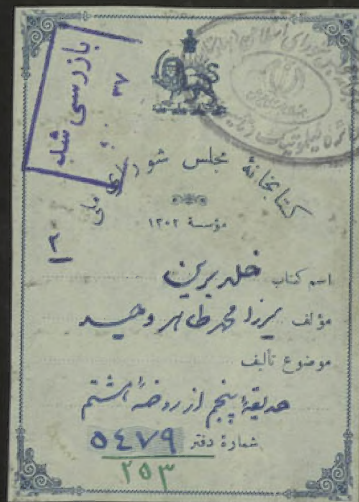 بازرسی شد
۳۷
کتابخانهٔ مجلس شورای ملی
مؤسسهٔ ۱۳۰۲
اسم کتاب خلد برین
مؤلف میرزا محمد طاهر وحید
موضوع تألیف
حدیقهٔ پنجم از روضهٔ هشتم
شمارهٔ دفتر ۵۴۷۹
۲۵۳